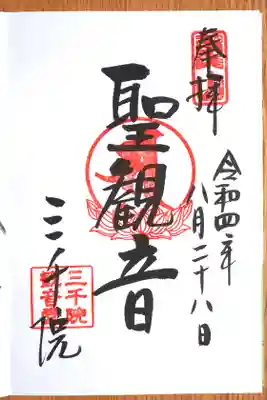 奉拝
令和四年
八月二十八日
聖観音
三千院
三千院